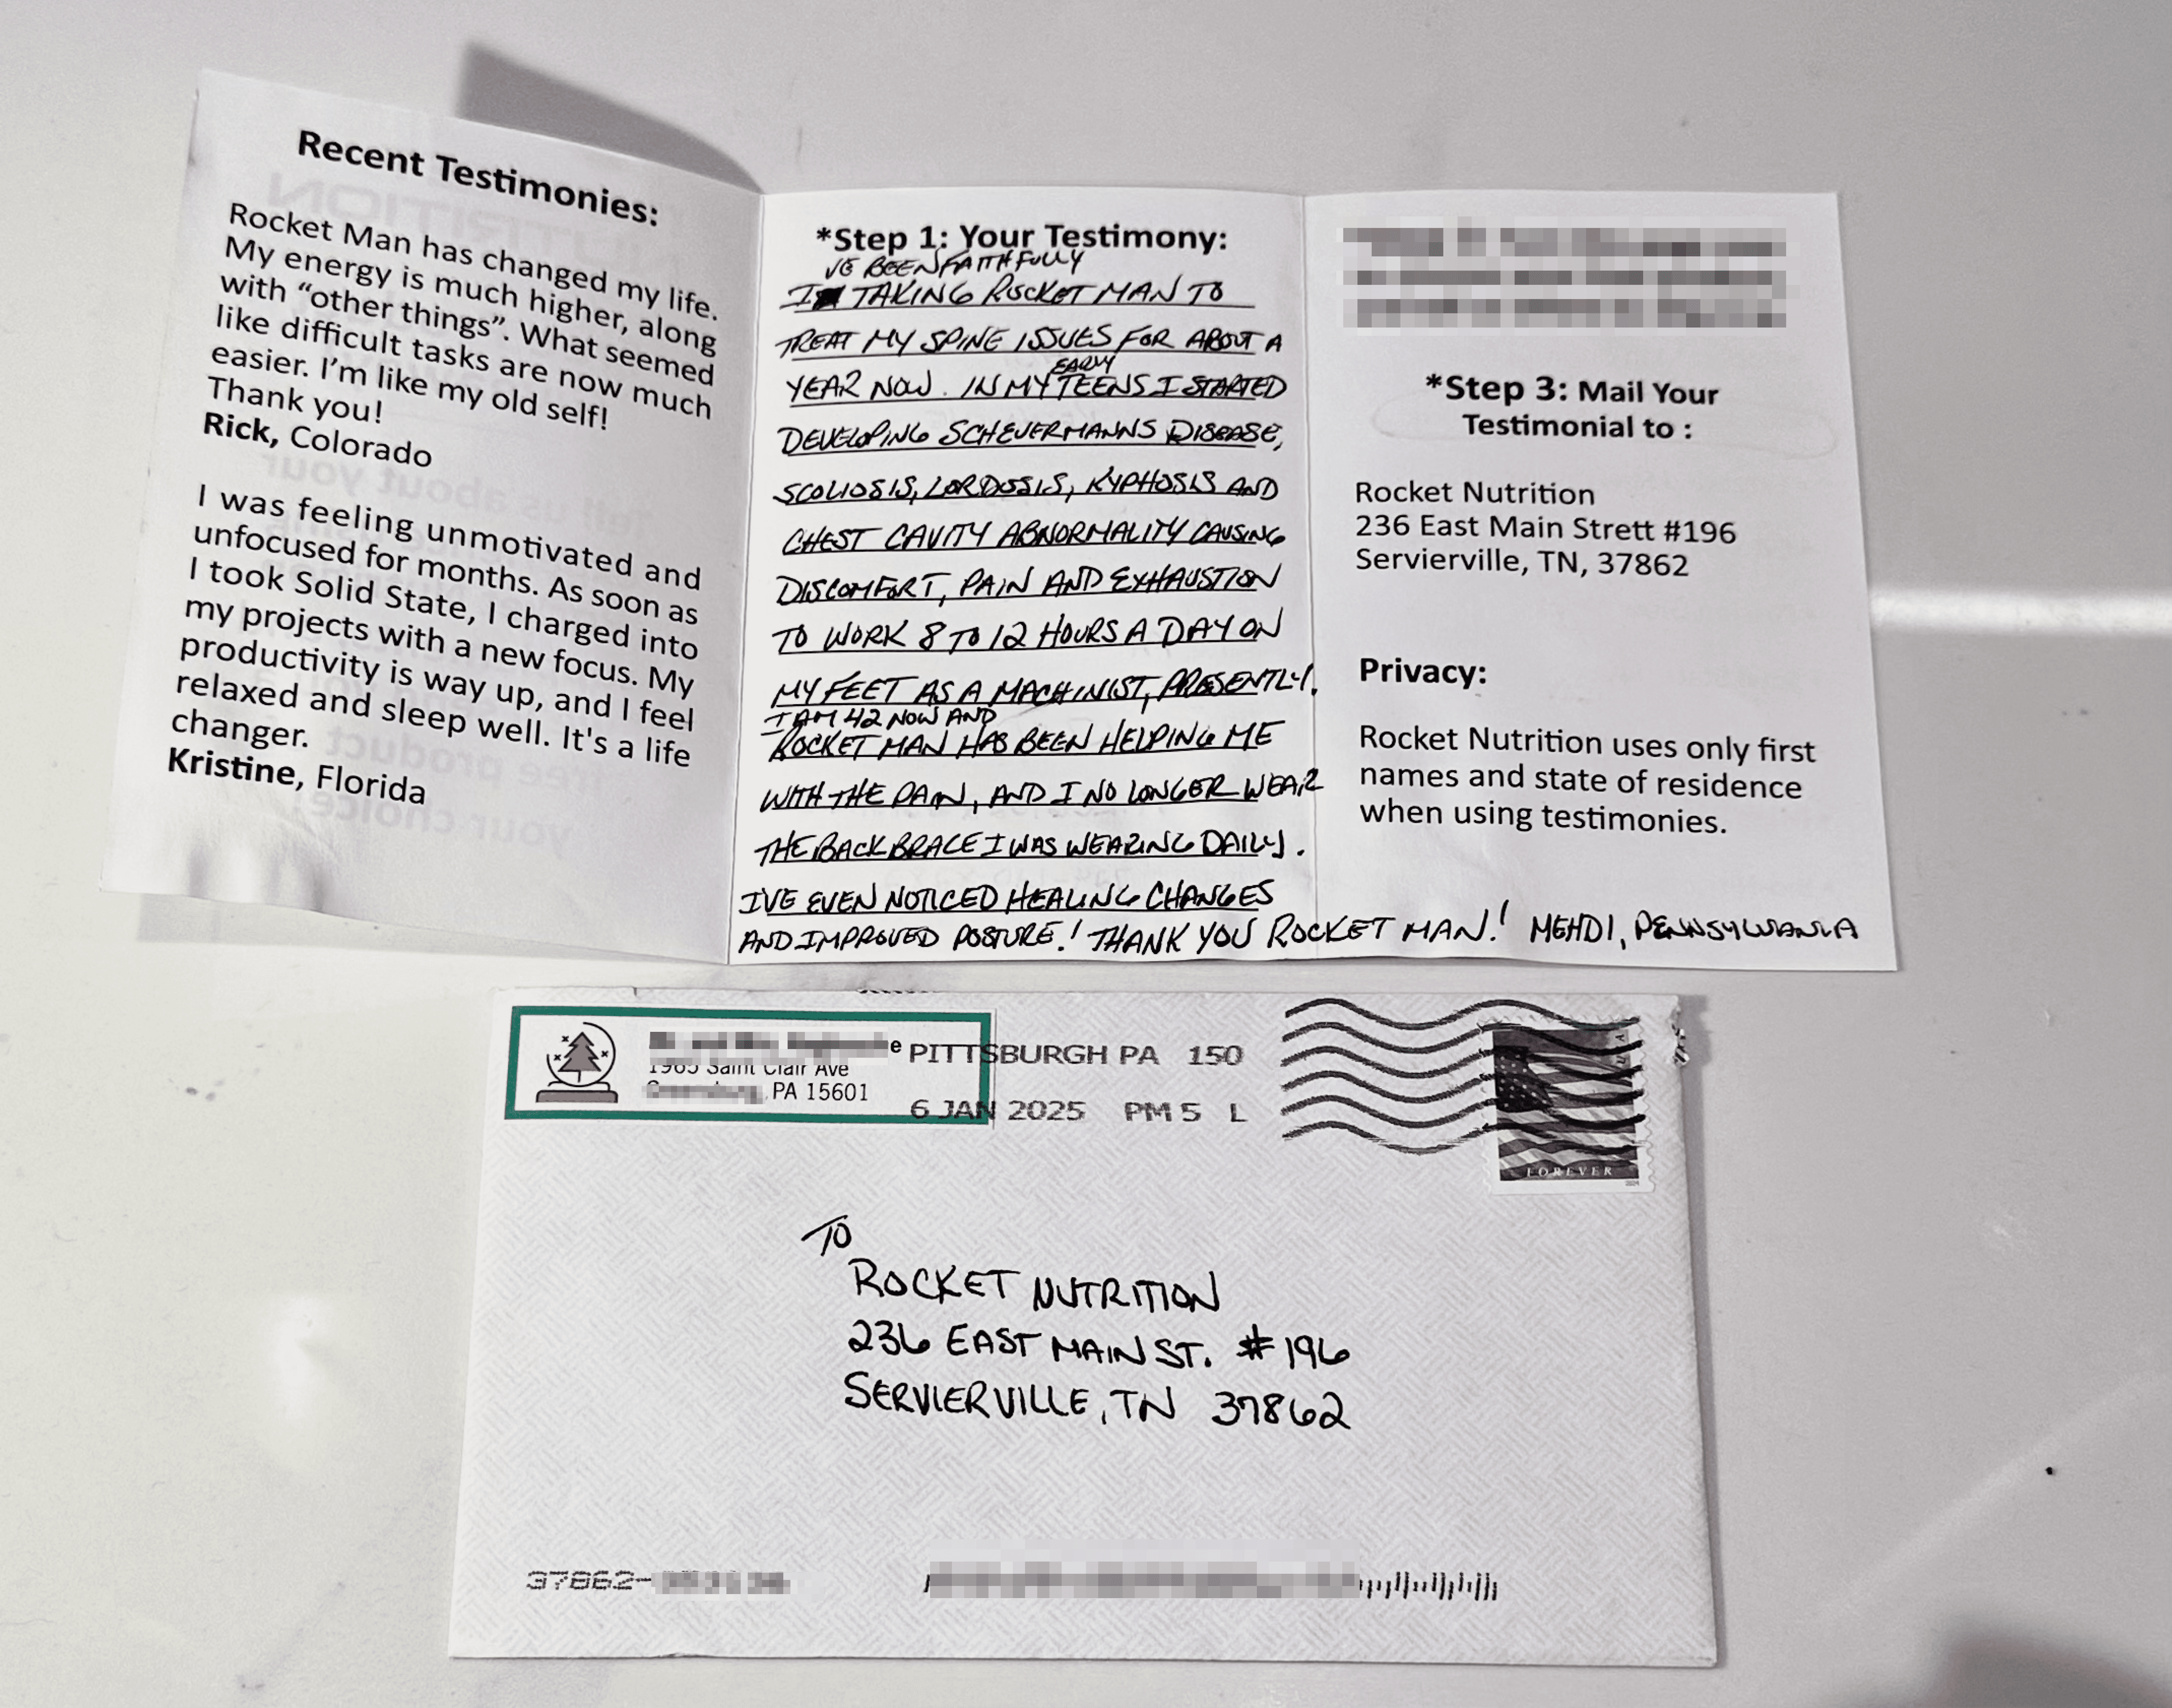 Recent Testimonies:
Rocket Man has changed my life.
My energy is much higher, along
with “other things”. What seemed
like difficult tasks are now much
easier. I’m like my old self!
Thank you!
Rick, Colorado
I was feeling unmotivated and
unfocused for months. As soon as
I took Solid State, I charged into
my projects with a new focus. My
productivity is way up, and I feel
relaxed and sleep well. It's a life
changer.
Kristine, Florida
*Step 1: Your Testimony:
'VE BEEN FAITHFULLY
I TAKING ROCKET MAN TO
TREAT MY SPINE ISSUES FOR ABOUT A
EARLY
YEAR NOW. IN MY TEENS I STARTED
DEVELOPING SCHEUERMANNS DISEASE,
SCOLIOSIS, LORDOSIS, KYPHOSIS AND
CHEST CAVITY ABNORMALITY CAUSING
DISCOMFORT, PAIN AND EXHAUSTION
TO WORK 8 TO 12 HOURS A DAY ON
MY FEET AS A MACHINIST, PRESENTLY.
I AM 42 NOW AND
ROCKET MAN HAS BEEN HELPING ME
WITH THE PAIN, AND I NO LONGER WEAR
THE BACK BRACE I WAS WEARING DAILY.
I'VE EVEN NOTICED HEALING CHANGES
AND IMPROVED POSTURE! THANK YOU ROCKET MAN! MEHDI, PENNSYLVANIA
*Step 3: Mail Your
Testimonial to :
Rocket Nutrition
236 East Main Strett #196
Servierville, TN, 37862
Privacy:
Rocket Nutrition uses only first
names and state of residence
when using testimonies.
1965 Saint Clair Ave
PA 15601
PITTSBURGH PA 150
6 JAN 2025 PM 5 L
FOREVER
TO
ROCKET NUTRITION
236 EAST MAIN ST. #196
SERVIERVILLE, TN 37862
37862-